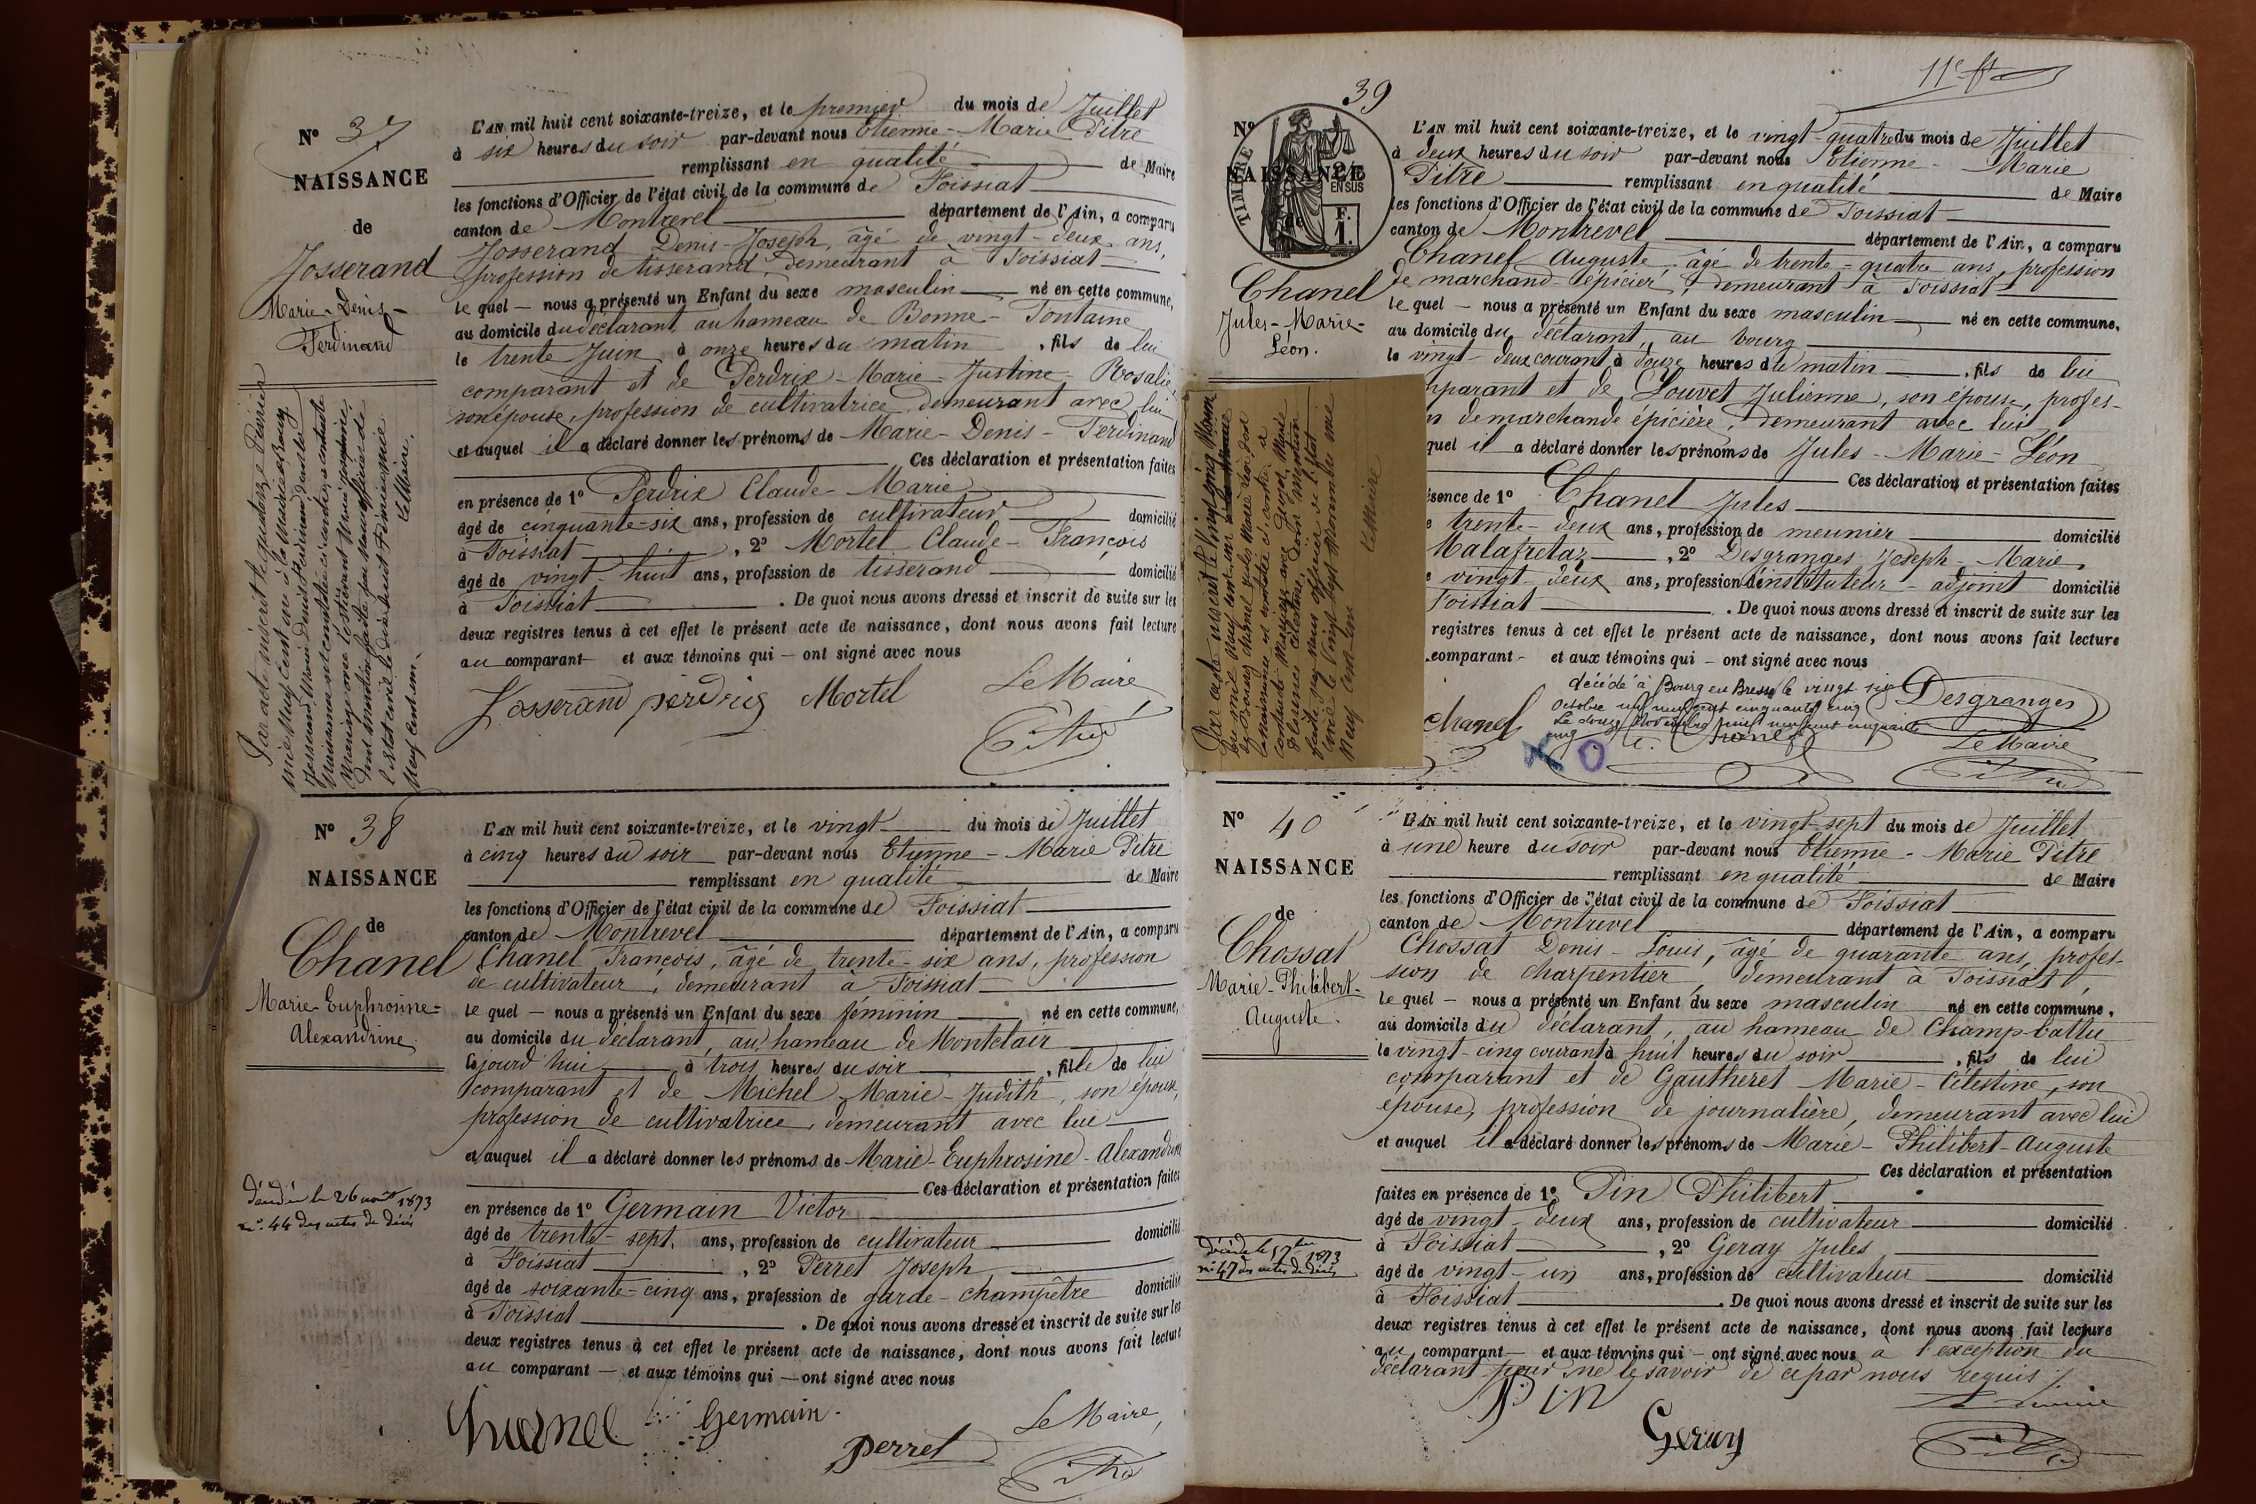 N° 37
NAISSANCE
de
Josserand
Marie-Denis-
Ferdinand
L'AN mil huit cent soixante-treize, et le premier du mois de Juillet
à six heures du soir par-devant nous Etienne-Marie Pitre
remplissant en qualité de Maire
les fonctions d'Officier de l'état civil de la commune de Foissiat
canton de Montrevel département de l'Ain, a comparu
Josserand Denis-Joseph, âgé de vingt-deux ans,
profession de tisserand, demeurant à Foissiat
le quel — nous a présenté un Enfant du sexe masculin né en cette commune,
au domicile du déclarant, au hameau de Bonne-Fontaine
le trente Juin à onze heures du matin, fils de lui
comparant et de Perdrix Marie-Justine-Rosalie
son épouse, profession de cultivatrice demeurant avec lui
et auquel il a déclaré donner les prénoms de Marie-Denis-Ferdinand
Ces déclaration et présentation faites
en présence de 1° Perdrix Claude-Marie
âgé de cinquante-six ans, profession de cultivateur domicilié
à Foissiat, 2° Mortel Claude-François
âgé de vingt-huit ans, profession de tisserand domicilié
à Foissiat. De quoi nous avons dressé et inscrit de suite sur les
deux registres tenus à cet effet le présent acte de naissance, dont nous avons fait lecture
au comparant et aux témoins qui — ont signé avec nous
Josserand perdrix Mortel Le Maire
Pitre
Par acte inscrit le quatorze Février
mil neuf cent un à la Mairie de Bourg
Josserand Marie Denis Ferdinand dont la
Naissance est constatée ci contre, a contracté
Mariage avec
Dont mention faite par Nous officier de
l'état civil le dix huit Février mil
Neuf cent un. Le Maire.
N° 38
NAISSANCE
de
Chanel
Marie-Euphrosine-
Alexandrine
L'AN mil huit cent soixante-treize, et le vingt du mois de Juillet
à cinq heures du soir par-devant nous Etienne-Marie Pitre
remplissant en qualité de Maire
les fonctions d'Officier de l'état civil de la commune de Foissiat
canton de Montrevel département de l'Ain, a comparu
Chanel François, âgé de trente-six ans, profession
de cultivateur, demeurant à Foissiat
le quel — nous a présenté un Enfant du sexe féminin né en cette commune,
au domicile du déclarant, au hameau de Montclair
le jourd'hui à trois heures du soir, fille de lui
comparant et de Michel Marie-Judith, son épouse,
profession de cultivatrice, demeurant avec lui
et auquel il a déclaré donner les prénoms de Marie-Euphrosine-Alexandrine
Ces déclaration et présentation faites
en présence de 1° Germain Victor
âgé de trente-sept ans, profession de cultivateur domicilié
à Foissiat, 2° Perret Joseph
âgé de soixante-cinq ans, profession de garde-champêtre domicilié
à Foissiat. De quoi nous avons dressé et inscrit de suite sur les
deux registres tenus à cet effet le présent acte de naissance, dont nous avons fait lecture
au comparant — et aux témoins qui — ont signé avec nous
Chanel Germain Le Maire,
Perret Pitre
décédée le 26 août 1873
n° 44 des actes de décès
11e ft
39
N°
NAISSANCE
de
TIMBRE
2/10
EN SUS
F.
1.
Chanel
Jules-Marie-
Léon.
L'AN mil huit cent soixante-treize, et le vingt-quatre du mois de Juillet
à deux heures du soir par-devant nous Etienne-Marie
Pitre remplissant en qualité de Maire
les fonctions d'Officier de l'état civil de la commune de Foissiat
canton de Montrevel département de l'Ain, a comparu
Chanel Auguste, âgé de trente-quatre ans, profession
de marchand-épicier, demeurant à Foissiat
le quel — nous a présenté un Enfant du sexe masculin né en cette commune,
au domicile du déclarant, au bourg
le vingt-deux courant à douze heures du matin, fils de lui
mparant et de Louvet Julienne, son épouse, profes-
n de marchande épicière, demeurant avec lui
quel il a déclaré donner les prénoms de Jules-Marie-Léon
Ces déclaration et présentation faites
ésence de 1° Chanel Jules
e trente-deux ans, profession de meunier domicilié
Malafretaz, 2° Desgranges Joseph-Marie,
e vingt-deux ans, profession d'instituteur-adjoint domicilié
Foissiat. De quoi nous avons dressé et inscrit de suite sur les
registres tenus à cet effet le présent acte de naissance, dont nous avons fait lecture
comparant - et aux témoins qui - ont signé avec nous
décédé à Bourg en Bresse le vingt six
Octobre mil neuf cent cinquante cinq
Le douze Novembre mil neuf cent cinquante
cinq
Chanel J. Chanel Desgranges
Le Maire
Pitre
Par acte inscrit le vingt cinq
mil neuf cent un
de Bourg Chanel Jules Marie Léon dont
la naissance est constatée ci contre, a
contracté Mariage avec
faite par nous officier de l'état
civil le vingt sept Novembre mil
Neuf cent un Le Maire
N° 40
NAISSANCE
de
Chossat
Marie-Philibert-
Auguste.
L'AN mil huit cent soixante-treize, et le vingt-sept du mois de Juillet
à une heure du soir par-devant nous Etienne-Marie Pitre
remplissant en qualité de Maire
les fonctions d'Officier de l'état civil de la commune de Foissiat
canton de Montrevel département de l'Ain, a comparu
Chossat Denis-Louis, âgé de quarante ans, profes-
sion de charpentier, demeurant à Foissiat,
le quel — nous a présenté un Enfant du sexe masculin né en cette commune,
au domicile du déclarant, au hameau de Champ-battu
le vingt-cinq courant à huit heures du soir, fils de lui
comparant et de Gautheret Marie-Célestine, son
épouse, profession de journalière, demeurant avec lui
et auquel il a déclaré donner les prénoms de Marie-Philibert-Auguste
Ces déclaration et présentation
faites en présence de 1° Pin Philibert
âgé de vingt-deux ans, profession de cultivateur domicilié
à Foissiat, 2° Geray Jules
âgé de vingt-un ans, profession de cultivateur domicilié
à Foissiat. De quoi nous avons dressé et inscrit de suite sur les
deux registres tenus à cet effet le présent acte de naissance, dont nous avons fait lecture
au comparant — et aux témoins qui — ont signé avec nous à l'exception du
déclarant pour ne le savoir de ce par nous requis
Pin Le Maire
Geray Pitre
décédé le 1873
n° 47 des actes de décès